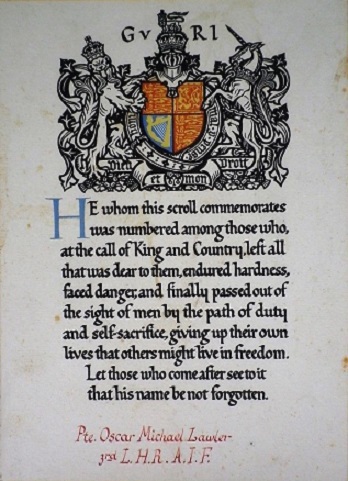 G V R I
Dieu et mon Droit
HE whom this scroll commemorates
was numbered among those who,
at the call of King and Country, left all
that was dear to them, endured hardness,
faced danger, and finally passed out of
the sight of men by the path of duty
and self-sacrifice, giving up their own
lives that others might live in freedom.
Let those who come after see to it
that his name be not forgotten.
Pte. Oscar Michael Lawler
3rd L.H.R. A.I.F.